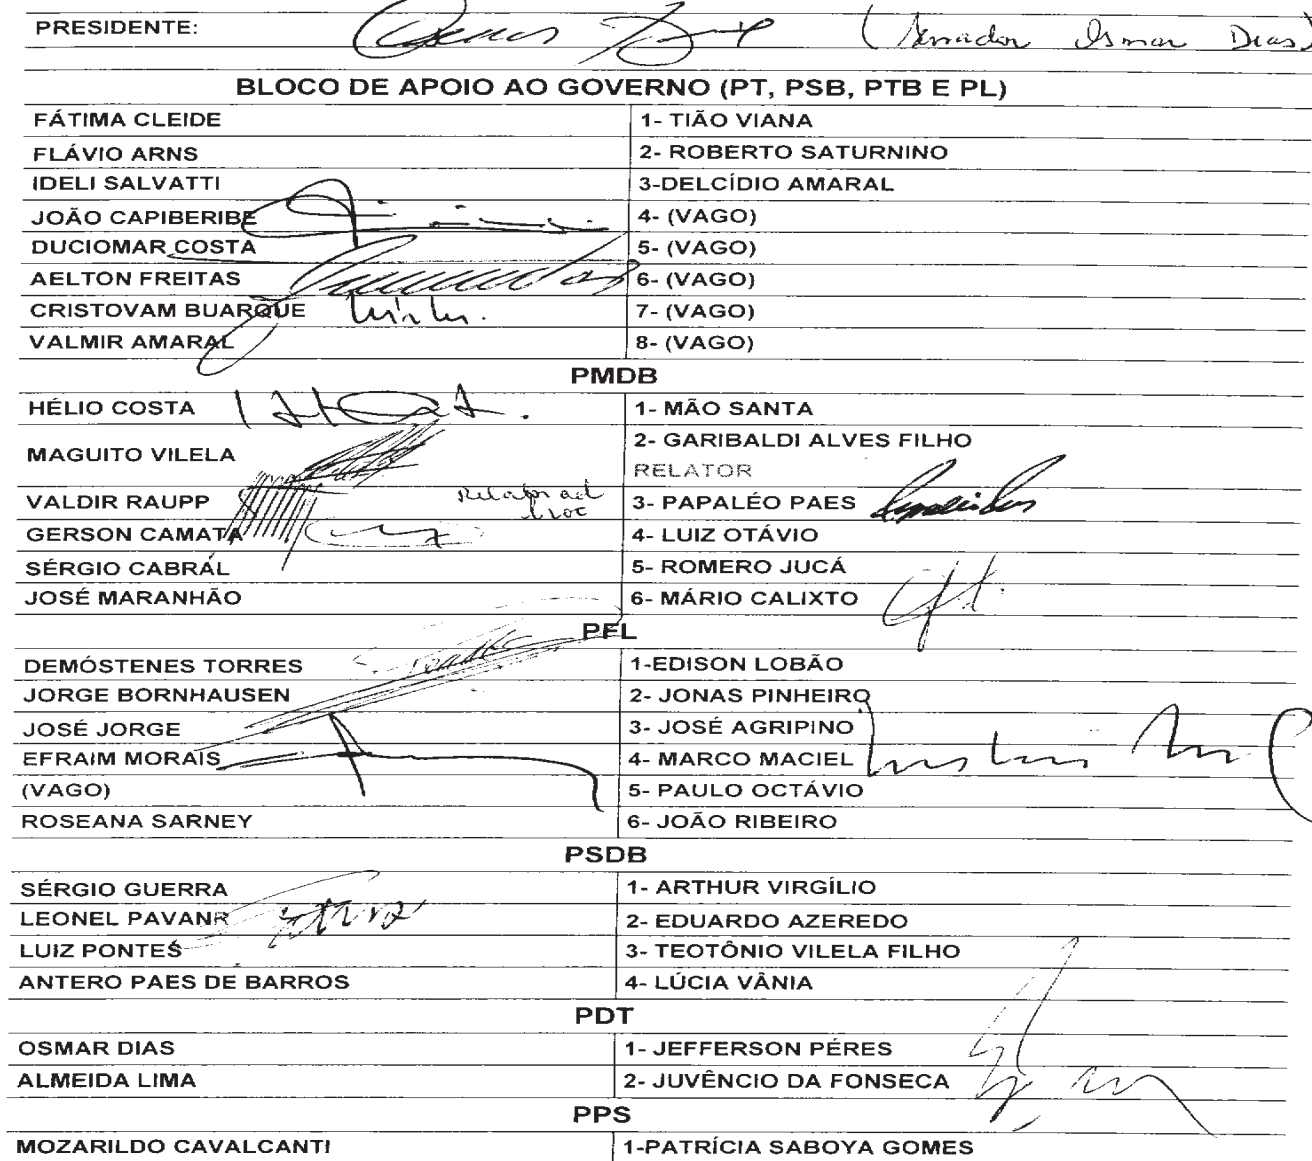 PRESIDENTE: (Senador Osmar Dias)
BLOCO DE APOIO AO GOVERNO (PT, PSB, PTB E PL)
FÁTIMA CLEIDE 1- TIÃO VIANA
FLÁVIO ARNS 2- ROBERTO SATURNINO
IDELI SALVATTI 3-DELCÍDIO AMARAL
JOÃO CAPIBERIBE 4- (VAGO)
DUCIOMAR COSTA 5- (VAGO)
AELTON FREITAS 6- (VAGO)
CRISTOVAM BUARQUE 7- (VAGO)
VALMIR AMARAL 8- (VAGO)
PMDB
HÉLIO COSTA 1- MÃO SANTA
MAGUITO VILELA 2- GARIBALDI ALVES FILHO
RELATOR
VALDIR RAUPP Relator ad hoc 3- PAPALÉO PAES
GERSON CAMATA 4- LUIZ OTÁVIO
SÉRGIO CABRAL 5- ROMERO JUCÁ
JOSÉ MARANHÃO 6- MÁRIO CALIXTO
PFL
DEMÓSTENES TORRES 1-EDISON LOBÃO
JORGE BORNHAUSEN 2- JONAS PINHEIRO
JOSÉ JORGE 3- JOSÉ AGRIPINO
EFRAIM MORAIS 4- MARCO MACIEL
(VAGO) 5- PAULO OCTÁVIO
ROSEANA SARNEY 6- JOÃO RIBEIRO
PSDB
SÉRGIO GUERRA 1- ARTHUR VIRGÍLIO
LEONEL PAVAN 2- EDUARDO AZEREDO
LUIZ PONTES 3- TEOTÔNIO VILELA FILHO
ANTERO PAES DE BARROS 4- LÚCIA VÂNIA
PDT
OSMAR DIAS 1- JEFFERSON PÉRES
ALMEIDA LIMA 2- JUVÊNCIO DA FONSECA
PPS
MOZARILDO CAVALCANTI 1-PATRÍCIA SABOYA GOMES